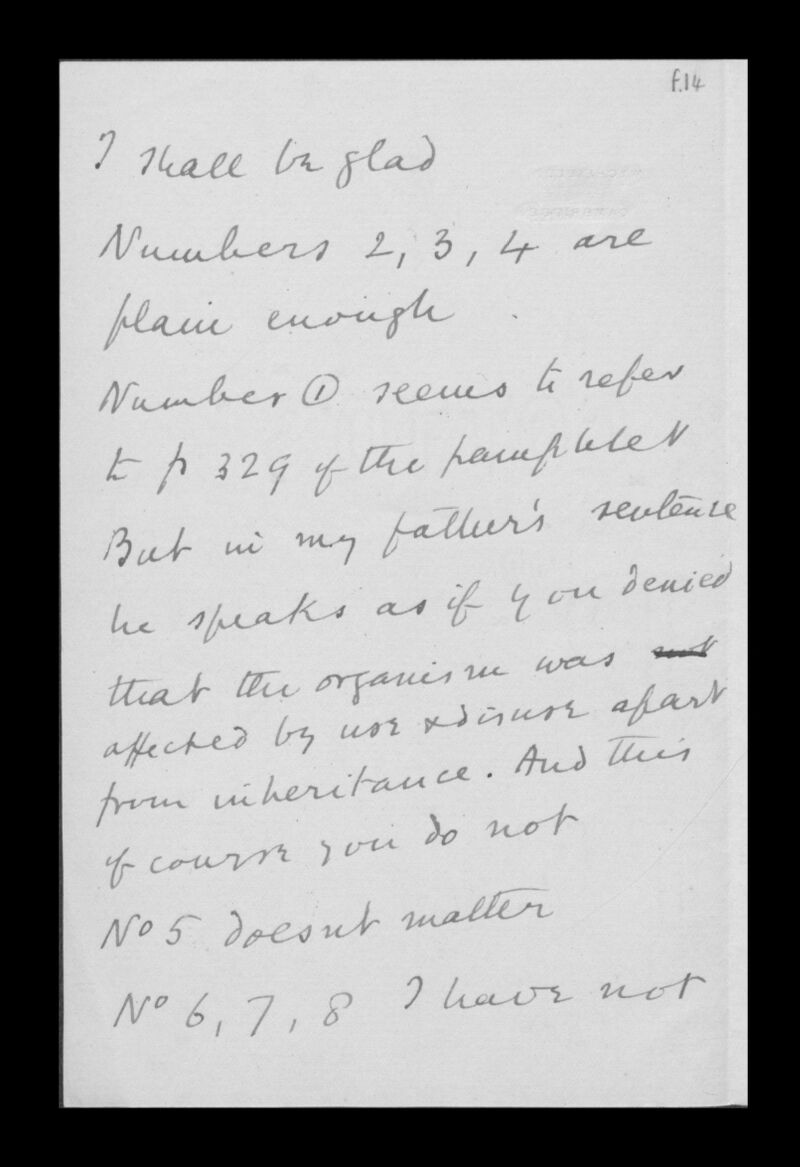 f.14
I shall be glad
Numbers 2, 3, 4 are
plain enough
Number ① seems to refer
to p 329 of the pamphlet
But in my father's sentence
he speaks as if you denied
that the organism was not
affected by use & disuse apart
from inheritance. And this
of course you do not
No 5 doesnt matter
No 6, 7, 8 I have not